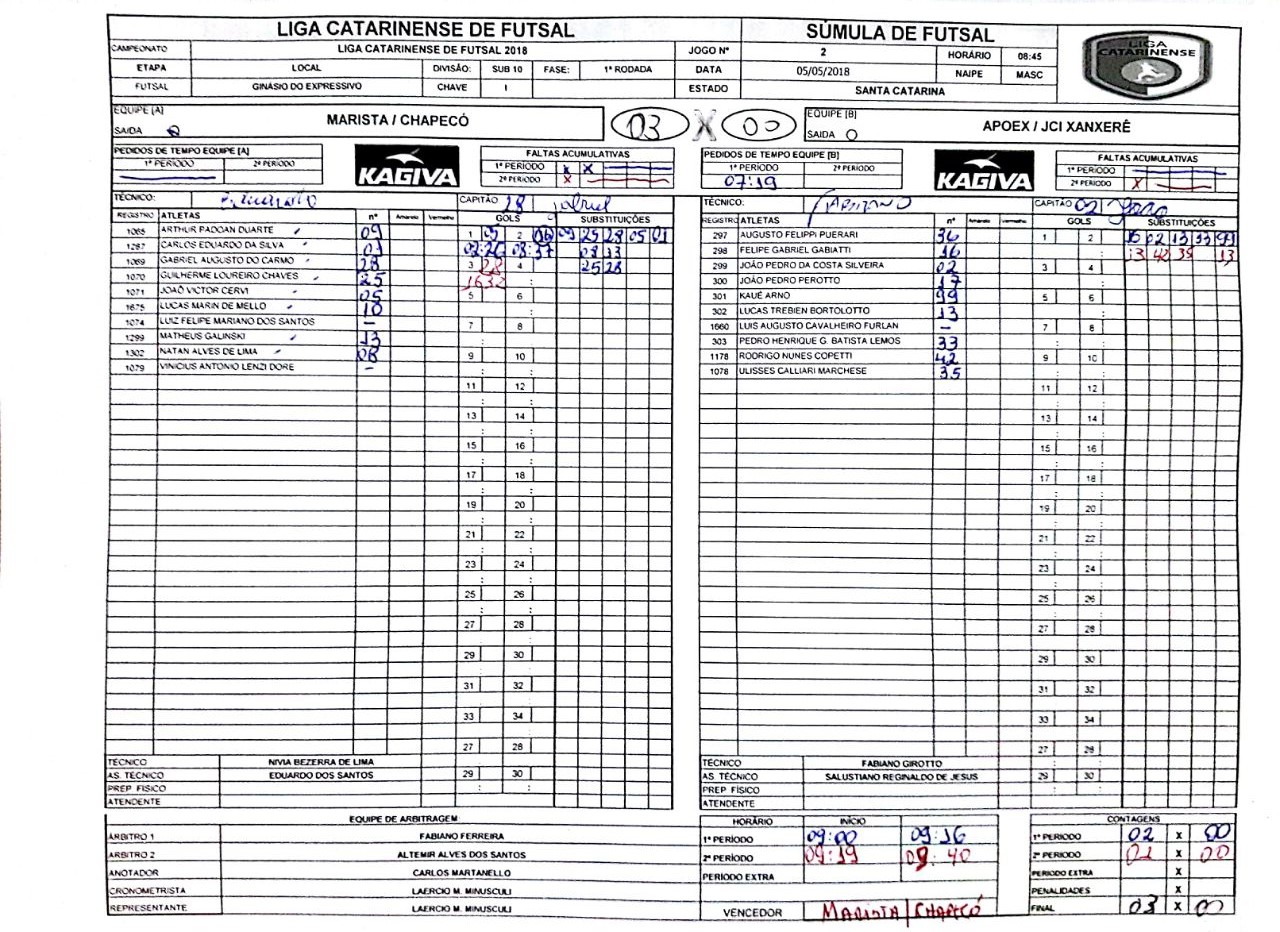 LIGA CATARINENSE DE FUTSAL SÚMULA DE FUTSAL
LIGA CATARINENSE
CAMPEONATO LIGA CATARINENSE DE FUTSAL 2018 JOGO Nº 2 HORÁRIO 08:45
ETAPA LOCAL DIVISÃO: SUB 10 FASE: 1ª RODADA DATA 05/05/2018 NAIPE MASC
FUTSAL GINASIO DO EXPRESSIVO CHAVE I ESTADO SANTA CATARINA
EQUIPE [A] MARISTA / CHAPECÓ 03 X 00 EQUIPE [B] APOEX / JCI XANXERÊ
SAIDA SAIDA
PEDIDOS DE TEMPO EQUIPE [A] KAGIVA FALTAS ACUMULATIVAS PEDIDOS DE TEMPO EQUIPE [B] KAGIVA FALTAS ACUMULATIVAS
1º PERÍODO 2º PERÍODO 1º PERÍODO X X 1º PERÍODO 2º PERÍODO 1º PERÍODO
2º PERÍODO X 07:19 2º PERÍODO X
TÉCNICO: CAPITÃO 28 TÉCNICO: FABIANO CAPITÃO 02 JOÃO
REGISTRO ATLETAS nº Amarelo Vermelho GOLS SUBSTITUIÇÕES REGISTRO ATLETAS nº Amarelo Vermelho GOLS SUBSTITUIÇÕES
1065 ARTHUR PADOAN DUARTE 09 1 05 2 06 09 25 28 05 01 297 AUGUSTO FELIPPI PUERARI 36 1 2 16 02 13 33 99
1287 CARLOS EDUARDO DA SILVA 01 02:26 08:37 08 13 298 FELIPE GABRIEL GABIATTI 16 13 42 35 13
1069 GABRIEL AUGUSTO DO CARMO 28 3 28 4 25 28 299 JOÃO PEDRO DA COSTA SILVEIRA 02 3 4
1070 GUILHERME LOUREIRO CHAVES 25 16 32 300 JOÃO PEDRO PEROTTO 17
1071 JOAÕ VICTOR CERVI 05 5 6 301 KAUÊ ARNO 99 5 6
1675 LUCAS MARIN DE MELLO 10 302 LUCAS TREBIEN BORTOLOTTO 13
1074 LUIZ FELIPE MARIANO DOS SANTOS – 7 8 1660 LUIS AUGUSTO CAVALHEIRO FURLAN – 7 8
1299 MATHEUS GALINSKI 13 303 PEDRO HENRIQUE G. BATISTA LEMOS 33
1302 NATAN ALVES DE LIMA 08 9 10 1178 RODRIGO NUNES COPETTI 42 9 10
1079 VINICIUS ANTONIO LENZI DORE – 1078 ULISSES CALLIARI MARCHESE 35
11 12 11 12
13 14 13 14
15 16 15 16
17 18 17 18
19 20 19 20
21 22 21 22
23 24 23 24
25 26 25 26
27 28 27 28
29 30 29 30
31 32 31 32
33 34 33 34
27 28 27 28
TÉCNICO NIVIA BEZERRA DE LIMA TÉCNICO FABIANO GIROTTO
AS. TÉCNICO EDUARDO DOS SANTOS 29 30 AS. TÉCNICO SALUSTIANO REGINALDO DE JESUS 29 30
PREP FÍSICO PREP FÍSICO
ATENDENTE ATENDENTE
EQUIPE DE ARBITRAGEM HORÁRIO INÍCIO CONTAGENS
ÁRBITRO 1 FABIANO FERREIRA 1º PERÍODO 09:00 09:16 1º PERIODO 02 X 00
ÁRBITRO 2 ALTEMIR ALVES DOS SANTOS 2º PERÍODO 09:19 09:40 2º PERIODO 01 X 00
ANOTADOR CARLOS MARTANELLO PERIODO EXTRA PERIODO EXTRA X
CRONOMETRISTA LAERCIO M. MINUSCULI PENALIDADES X
REPRESENTANTE LAERCIO M. MINUSCULI VENCEDOR MARISTA/CHAPECÓ FINAL 03 X 00